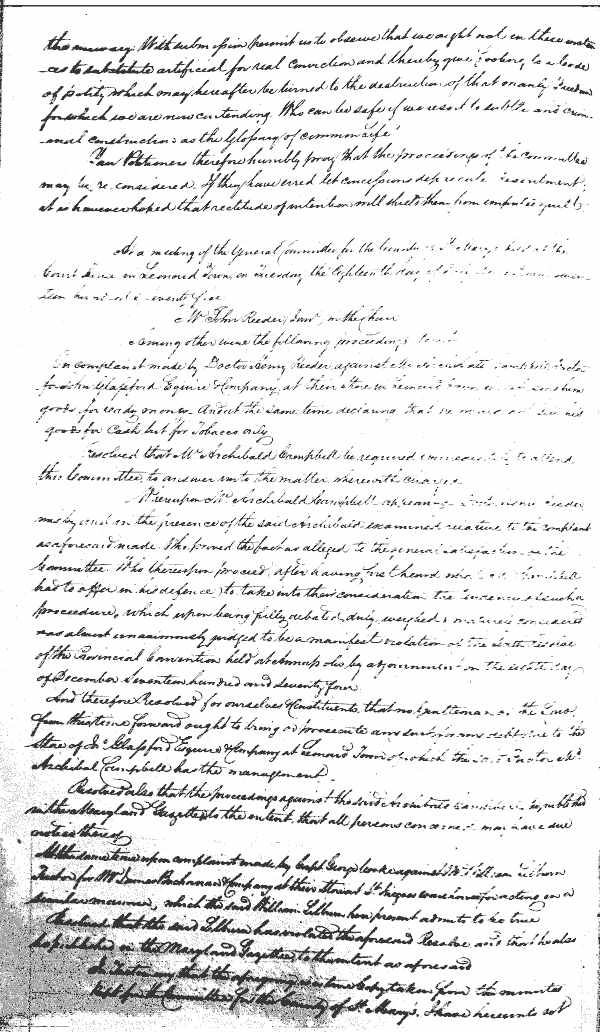 the memory. With submission permit us to observe that we ought not in these matters
as to substitute artificial for real conviction and thereby give to a code
of polity which may hereafter be turned to the destruction of that only Freedom
for which we are now contending. Who can be safe if we resort to subtle and crim-
-inal constructions as the Glossary of common life
Your Petitioners therefore humbly pray that the proceedings of the Committee
may be re considered. If they have erred let concessions deprecate resentment,
it is however hoped that rectitude of intention will shield them from imputed guilt.
At a meeting of the General Committee for the County of St Marys held at the
Court House in Leonard Town on Tuesday the fifteenth day of
teen hundred & seventy five
Mr. John Reeder, Junr. in the Chair
Among other were the following proceedings
On complaint made by Doctor Henry Reeder against Mr Archibald Campbell Factor
for John Glassford Esquire & Company, at their Store in Leonard Town
goods for ready money. And at the same time declaring, that he would not sell his
goods for Cash but for Tobacco only
Resolved that Mr. Archibald Campbell be required immediately to attend
this Committee, to answer unto the matter wherewith charged
Whereupon Mr. Archibald Campbell appearing Doctor Henry Reeder
was by and in the presence of the said Archibald examined relative to the complaint
as aforesaid made. Who proved the fact as alleged to the general satisfaction of the
Committee. Who thereupon proceed, after having first heard what Mr Campbell
had to offer in his defence, to take into their consideration the
procedure, which upon being fully debated, duly weighed & maturely considered
was almost unanimously judged to be a manifest violation of the Resolve
of the Provincial Convention held at Annapolis, by adjournment on the eighth day
of December seventeen hundred and seventy four
And therefore Resolved for ourselves & Constituents, that no Gentleman of the Law,
from this time forward ought to bring or prosecute any suit for any debt due to the
Store of Jno. Glassford Esquire & Company at Leonard Town of which the said Factor Mr.
Archibal Campbell has the management.
Resolved also that the proceedings against the said Archibald Campbell be published
in the Maryland Gazette to the intent, that all persons concerned may have due
notice thereof
At the same time upon complaint made by Capt. George Cooke against Mr. William Lilburn
Factor for Mr. James Buchanan & Company at their Store at St. Inigoes warehouse for acting in a
similar manner, which the said William Lilburn here present admits to be true
Resolved that the said Lilburn has violated the aforesaid Resolve and that he also
be published in the Maryland Gazette to the intent as aforesaid
In Testimony that the aforegoing is a true Copy taken from the minutes
kept for the Committee for the County of St. Mary's, I have hereunto set